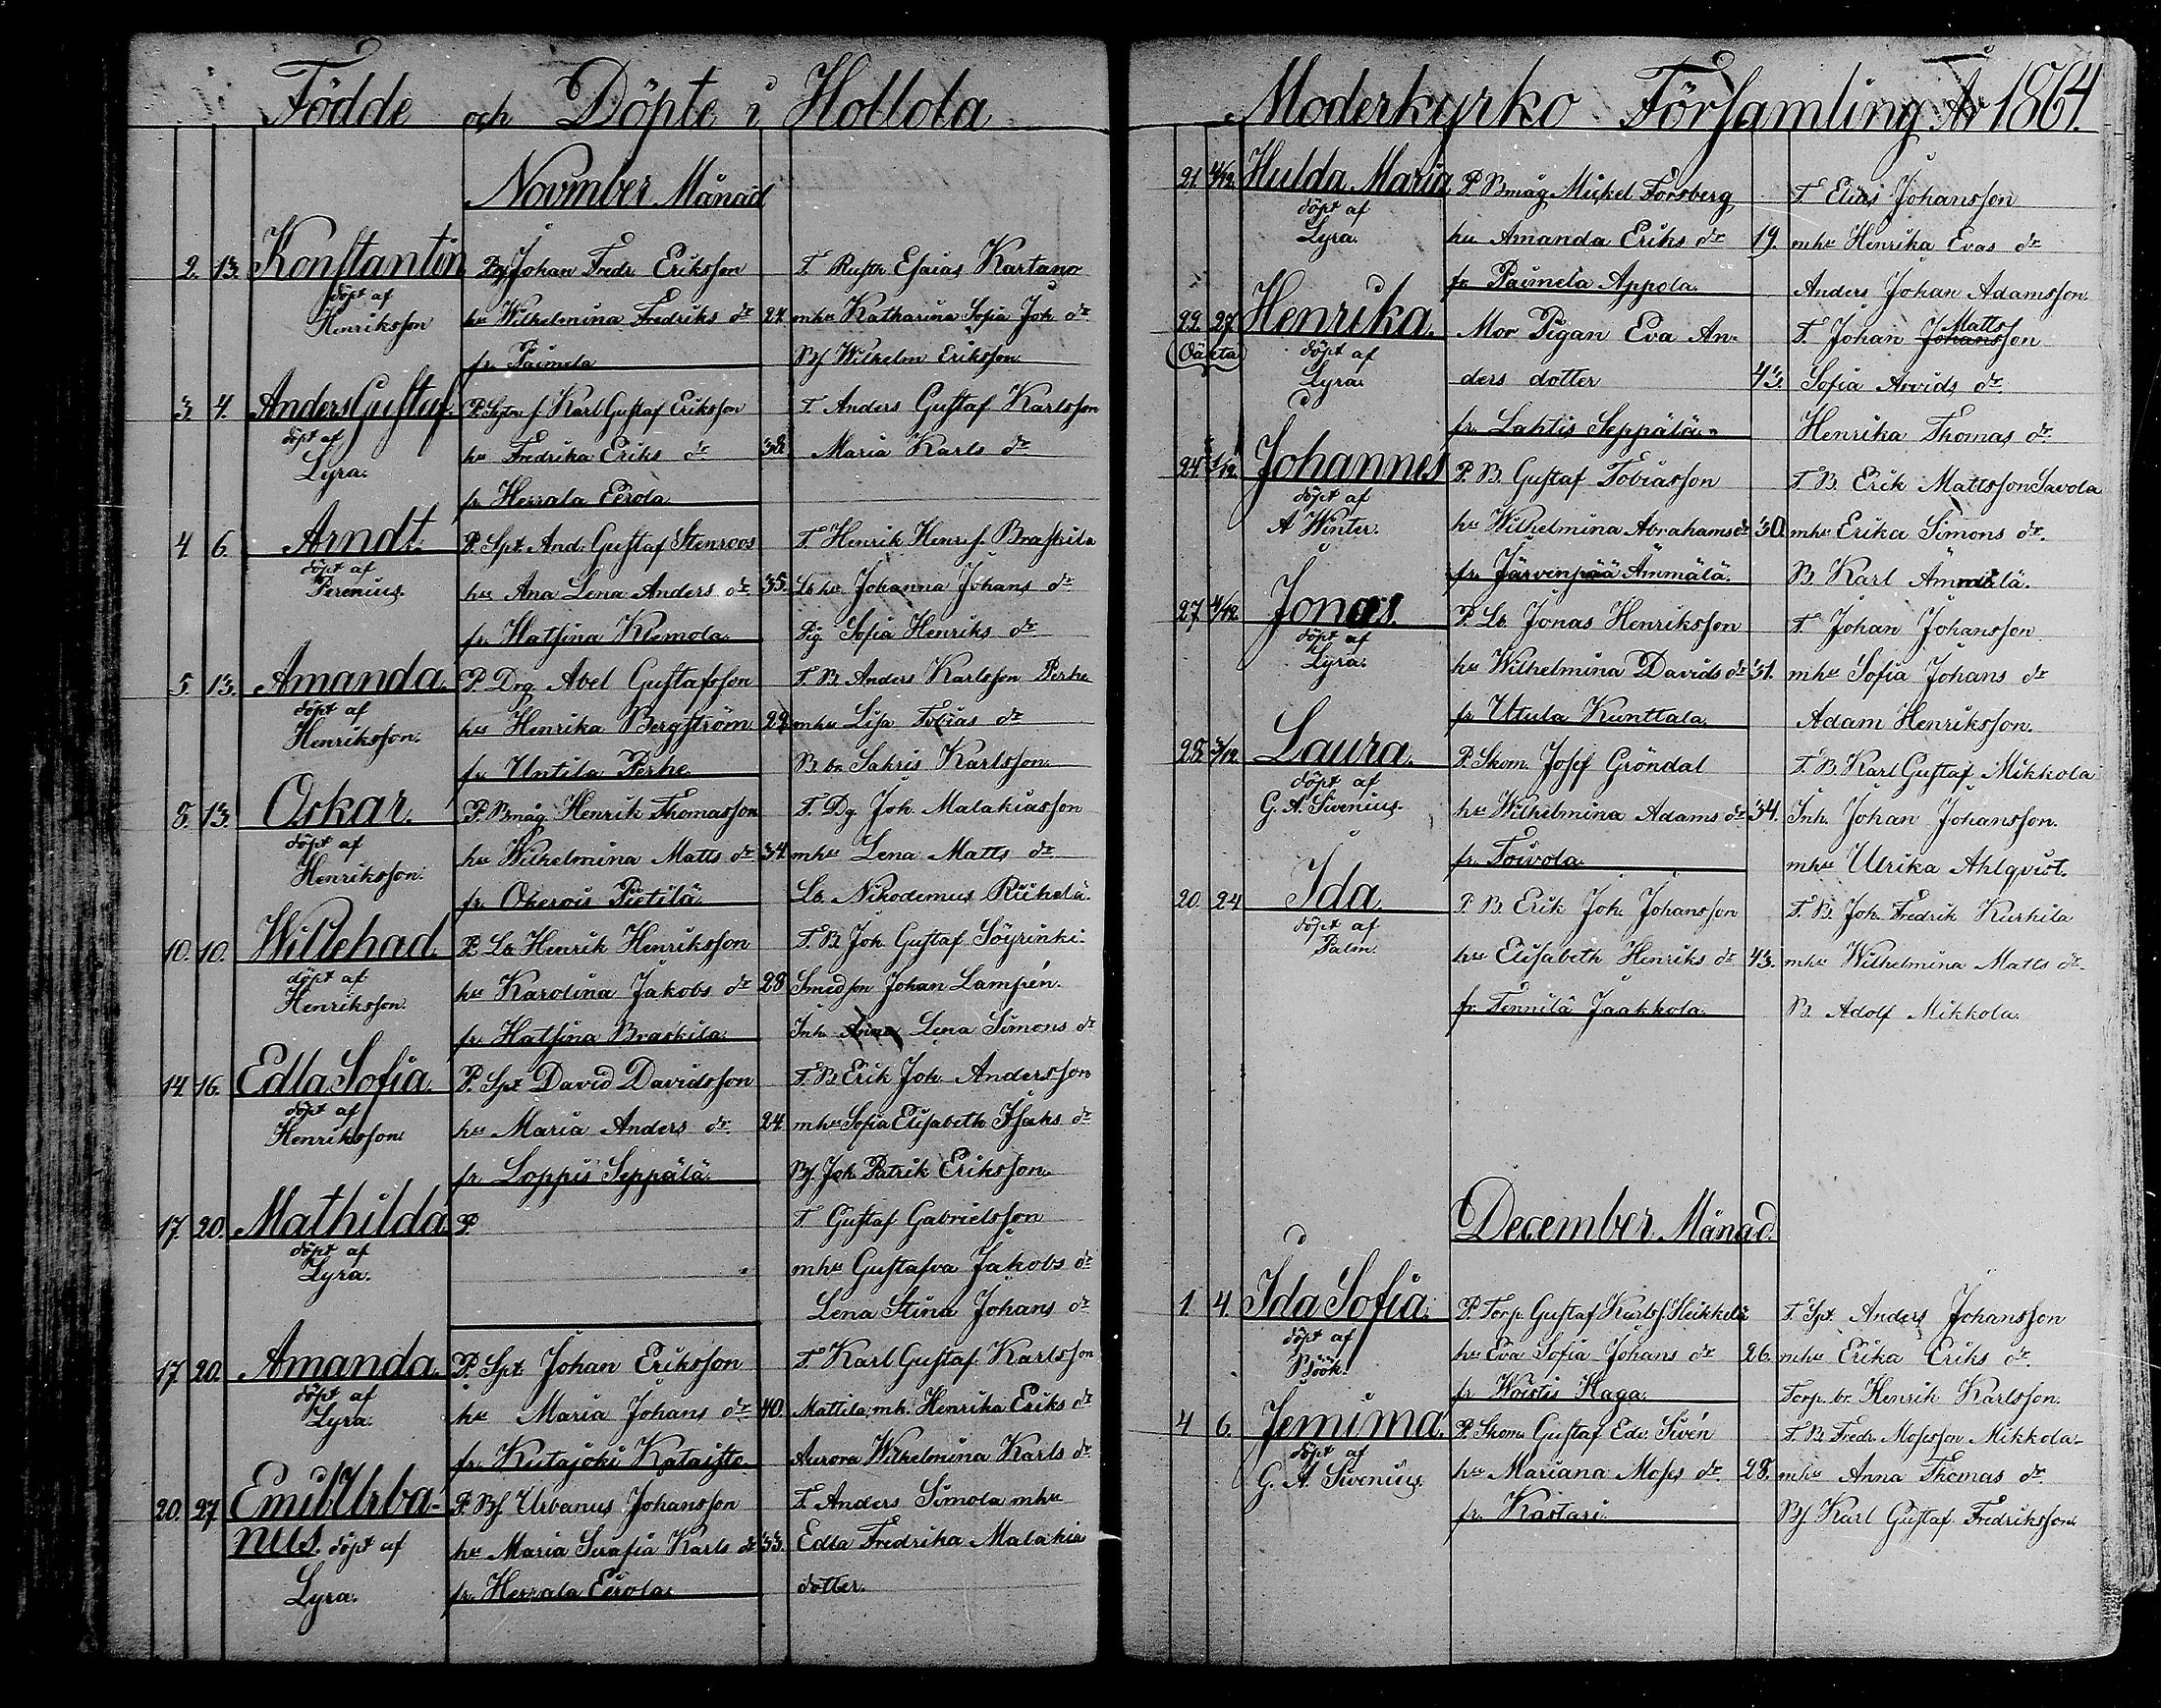 Födde och Döpte i Hollola
Novmber Månad
2. 13. Konstantin Dg Johan Fredr. Eriksson T. Rusth. Esaias Kartano
döpt af
Henriksson hu Wilhelmina Fredriks dr 24. mhu Katharina Sofia Joh. dr
fr. Paimela Bs Wilhelm Eriksson
3. 4. Anders Gustaf. P. Sytn. s. Karl Gustaf Eriksson T. Anders Gustaf Karlsson
döpt af
Lyra. hu Fredrika Eriks dr 32. Maria Karls dr
fr. Herrala Eerola
4. 6. Arndt. P. Spt. And. Gustaf Stenroos T. Henrik Henrs. Braskila
döpt af
Perenius. hu Ana Lena Anders dr 35. Lb hu Johanna Johans dr
fr. Hatsina Klemola. Pig. Sofia Henriks dr
5. 13. Amanda. P. Drg. Abel Gustafsson T. B. Anders Karlsson Perhe
döpt af
Henriksson. hu Henrika Bergström 29. mhu Lisa Tobias dr
fr. Untila Perhe B. br. Sakris Karlsson.
8. 13. Oskar. P. Bmåg Henrik Thomasson T. Dg. Joh. Malakiasson
döpt af
Henriksson. hu Wilhelmina Matts dr 34. mhu Lena Matts dr
fr. Okerois Pietilä. Lb. Nikodemus Riihelä.
10. 10. Willehad. P. Lb. Henrik Henriksson T. B. Joh. Gustaf Söyrinki.
döpt af
Henriksson. hu Karolina Jakobs dr 28 Smedson Johan Lampén.
fr. Hatsina Braskila. Inh. Anna Lena Simons dr
14. 16. Edla Sofia. P. Spt David Davidsson T. B. Erik Joh. Andersson
döpt af
Henriksson. hu Maria Anders dr. 24. mhu Sofia Elisabeth Isaks dr
fr. Loppis Seppälä. Bs. Joh. Patrik Eriksson.
17. 20. Mathilda. P. T. Gustaf Gabrielsson
döpt af
Lyra. mhu Gustafva Jakobs dr
Lena Stina Johans dr
17. 20. Amanda. P. Spt. Johan Eriksson T. Karl Gustaf Karlsson
döpt af
Lyra. hu Maria Johans dr 40. Mattila, mh. Henrika Eriks dr
fr. Kutajoki Kataisto. Aurora Wilhelmina Karls dr
20. 27. Emil Urba- P. Bs. Urbanus Johansson T. Anders Simola mhu
nus. döpt af hu Maria Serafia Karls dr 33. Edla Fredrika Malakia
Lyra. fr. Herrala Eerola. dotter.
Moderkyrko Församling År 1864.
21. 4/12. Hulda Maria P. Bmåg Mickel Forsberg T. Elias Johansson
döpt af
Lyra. hu Amanda Eriks dr 19. mhu Henrika Evas dr
fr. Paimela Appola. Anders Johan Adamsson.
22. 27. Henrika. Mor Pigan Eva An- T. Johan Johansson Matts
(Oäkta) döpt af
Lyra. ders dotter 43. Sofia Arvids dr
fr. Lahtis Seppälä. Henrika Thomas dr.
24. 1/12. Johannes P. B. Gustaf Tobiasson T. B. Erik Mattsson Savola
döpt af
A Winter. hu Wilhelmina Abrahams dr 30. mhu Erika Simons dr.
fr. Järvenpää Ämmälä. B. Karl Ämmälä.
27. 4/12. Jonas. P. Lb. Jonas Henriksson T. Johan Johansson.
döpt af
Lyra. hu Wilhelmina Davids dr 31. mhu Sofia Johans dr
fr. Utula Kunttala. Adam Henriksson.
28. 3/12. Laura. P. Skom. Josef Gröndal T. B. Karl Gustaf Mikkola
döpt af
G. A. Sivenius. hu Wilhelmina Adams dr 34. Inh. Johan Johansson.
fr. Toivola. mhu Ulrika Ahlqvist.
20. 24 Ida P. B. Erik Joh. Johansson T. B. Joh. Fredrik Kurhila
döpt af
Palm. hu Elisabeth Henriks dr 43. mhu Wilhelmina Matts dr.
fr. Tennilä Jaakkola. B. Adolf Mikkola.
December Månad.
1. 4. Ida Sofia. P. Torp. Gustaf Karlss. Heikkilä T. Spt. Anders Johansson
döpt af
Böök. hu Eva Sofia Johans dr 26. mhu Erika Eriks dr.
fr. Woistis Haga. Torp. br. Henrik Karlsson.
4 6. Jemima. P. Skom. Gustaf Edv. Sivén T. B. Fredr. Mosesson Mikkola.
döpt af
G. A. Sivenius. hu Mariana Moses dr. 28. mhu Anna Thomas dr
fr. Kastari. Bs Karl Gustaf Fredriksson.